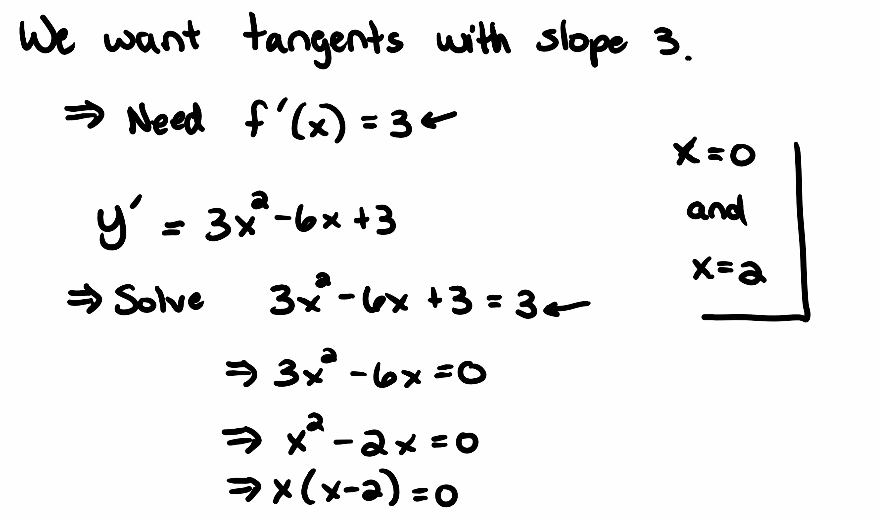 We want tangents with slope 3.
⇒ Need f'(x) = 3 ←
y' = 3x² - 6x + 3
⇒ Solve 3x² - 6x + 3 = 3 ←
⇒ 3x² - 6x = 0
⇒ x² - 2x = 0
⇒ x(x-2) = 0
x = 0
and
x = 2